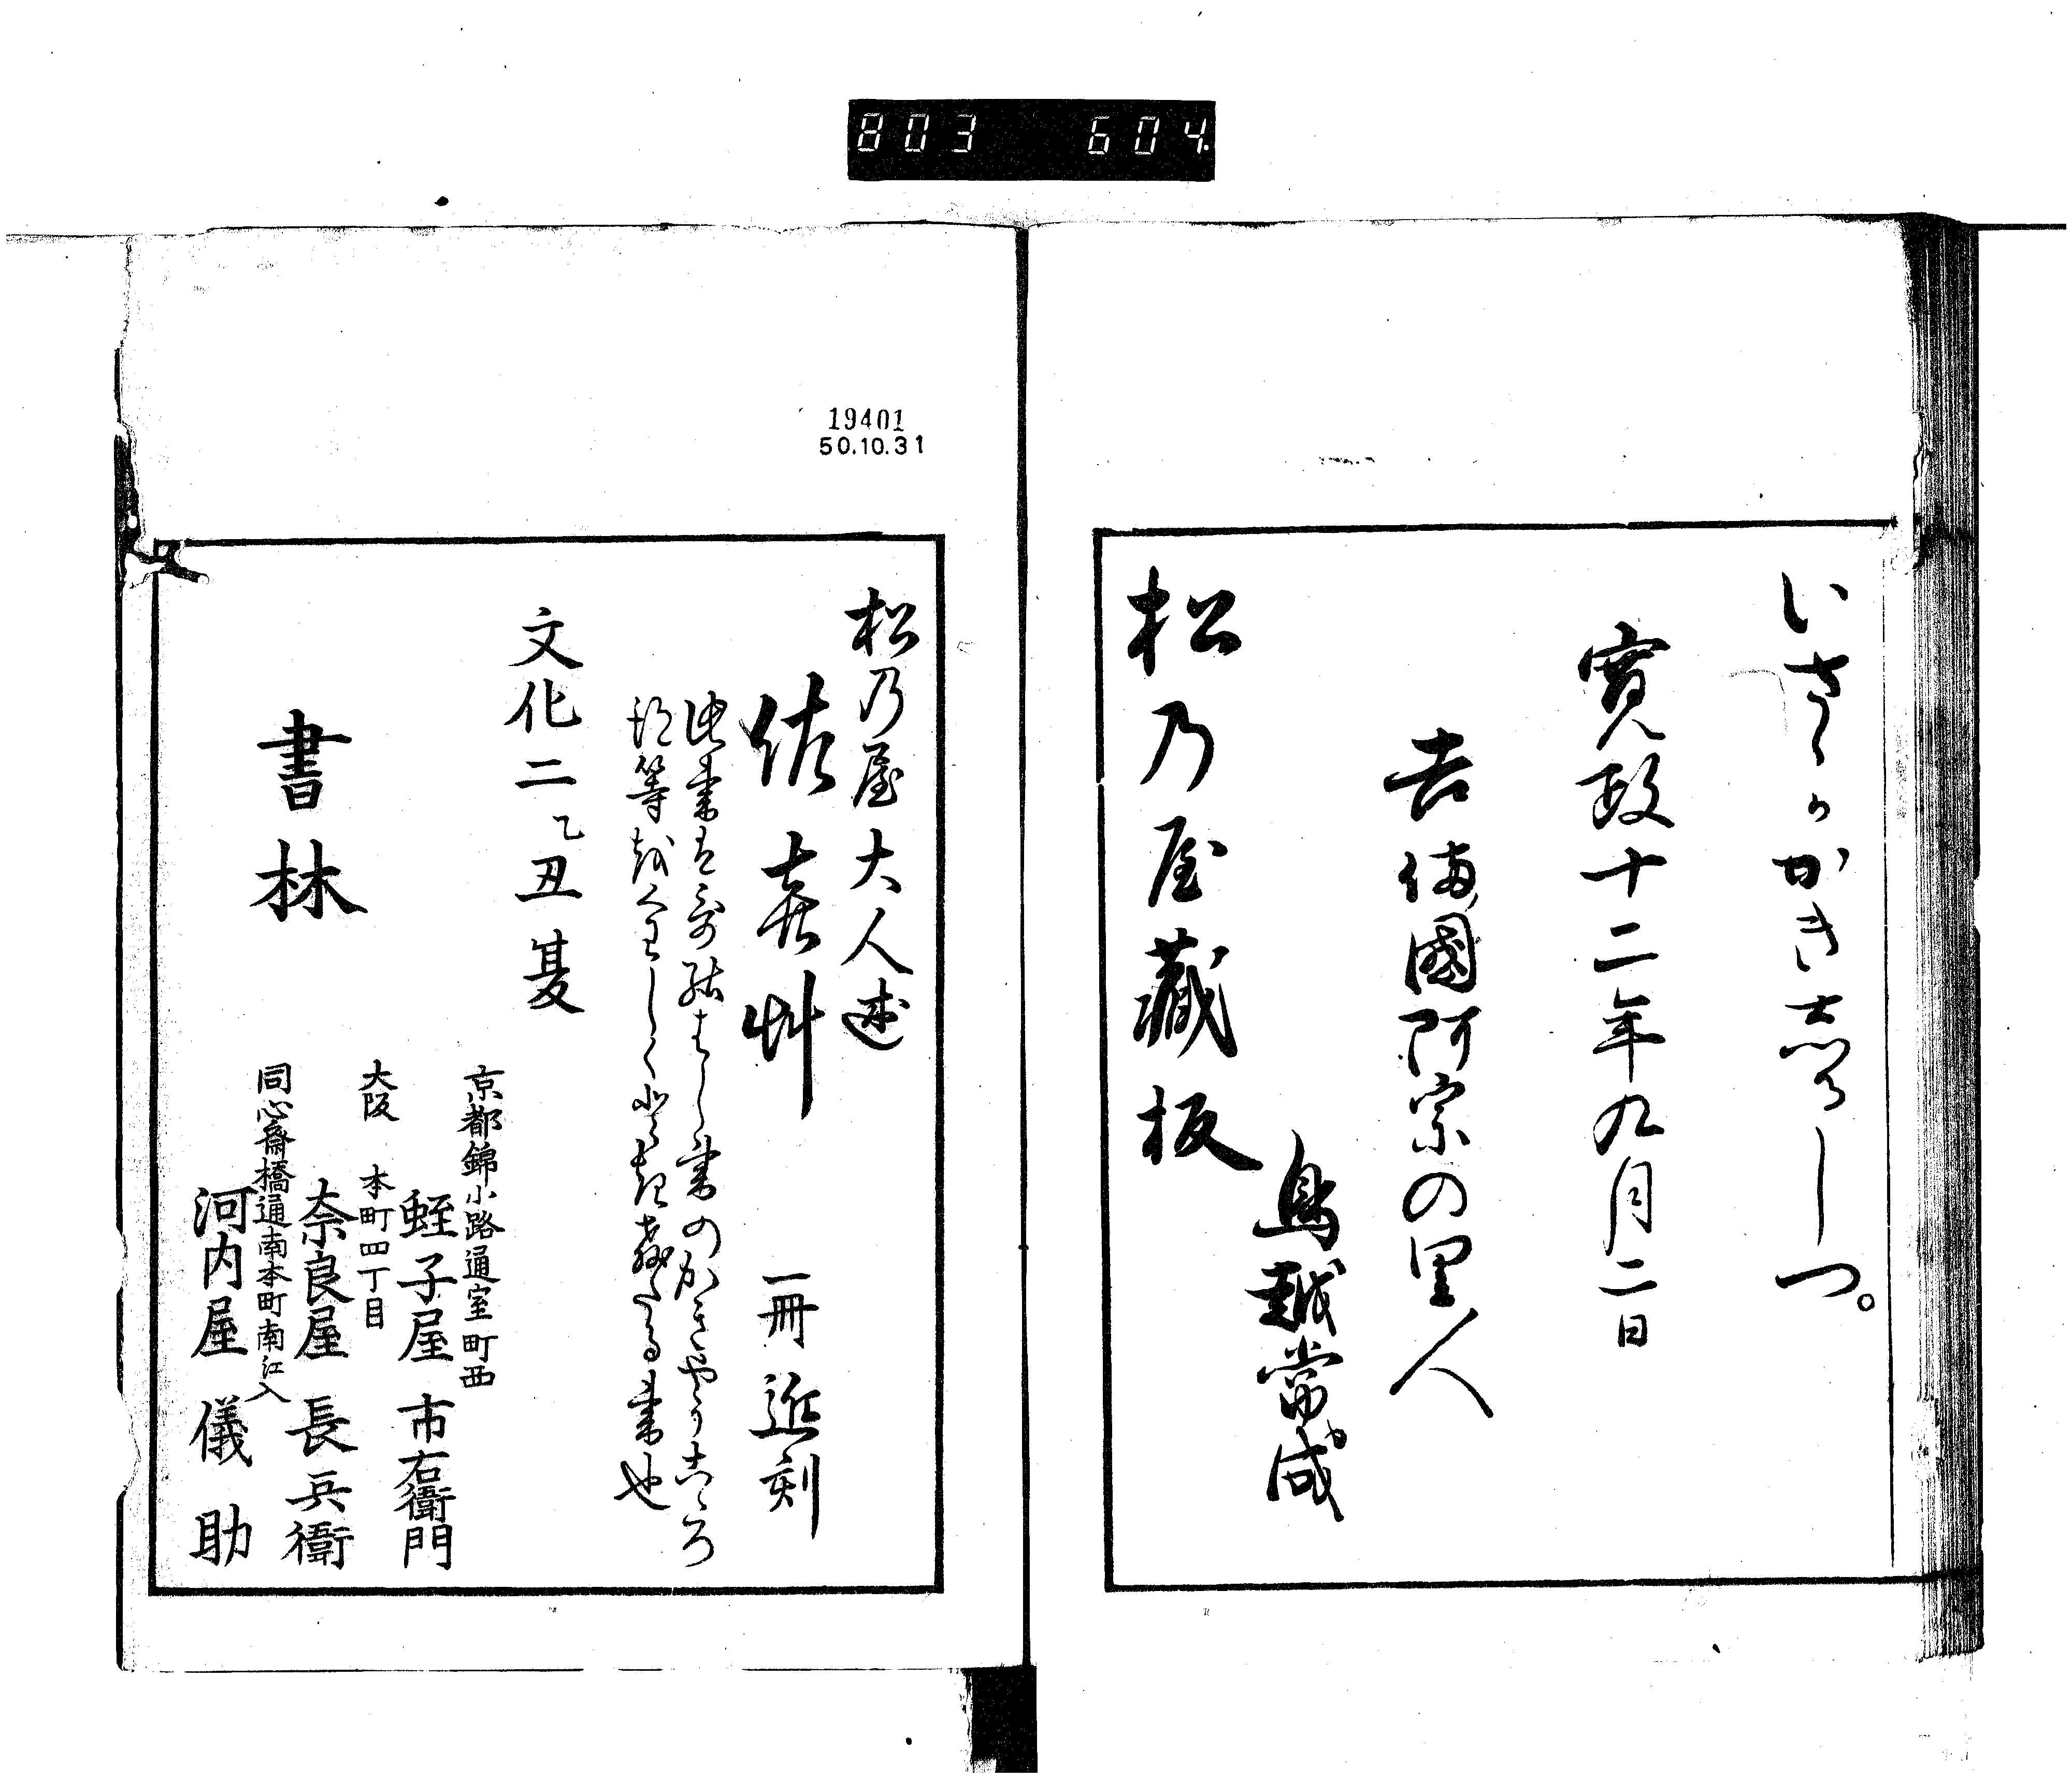 803 604
いさゝかかき志るしつ。
寛政十二年九月二日
吉備國阿宗の里人
鳥越常成
松乃屋藏板
19401
50.10.31
松乃屋大人述
佐喜艸 一冊近刻
此書は哥結はし書のかきやうこゝろ
得等越くはしくときをしへたる書也
文化二乙丑夏
書林
京都錦小路通室町西
蛭子屋市右衛門
大阪 本町四丁目
奈良屋長兵衛
同心齋橋通南本町南江入
河内屋儀助